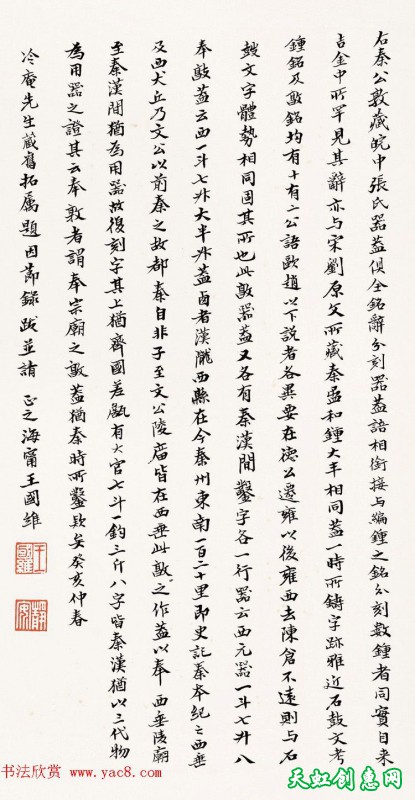 右秦公敦藏皖中張氏器蓋俱全銘辭分刻器蓋語相銜接与編鍾之銘分刻數鍾者同實自來
吉金中所罕見其辭亦与宋劉原父所藏秦盄和鍾大半相同蓋一時所鑄字跡雅近石鼓文考
鍾銘及敦銘均有十有二公語歐趙以下說者各異要在德公遷雍以後雍西去陳倉不遠則与石
鼓文字體勢相同固其所也此敦器蓋又各有秦漢間鑿字各一行器云西元器一斗七升八
奉敦蓋云西一斗七升大半升蓋西者漢隴西縣在今秦州東南一百二十里即史記秦本紀之西垂
及西犬丘乃文公以前秦之故都秦自非子至文公陵廟皆在西垂此敦之作蓋以奉西垂陵廟
至秦漢間猶為用器故復刻字其上猶齊國差𦉜有大官七斗一鈞三斤八字皆秦漢猶以三代物
為用器之證其云奉敦者謂奉宗廟之敦蓋猶秦時所鑿款矣癸亥仲春
冷庵先生藏舊拓屬題因節錄跋並請 正之海甯王國維
王國維
靜安
书法欣赏
www.yac8.com
天虹创意网